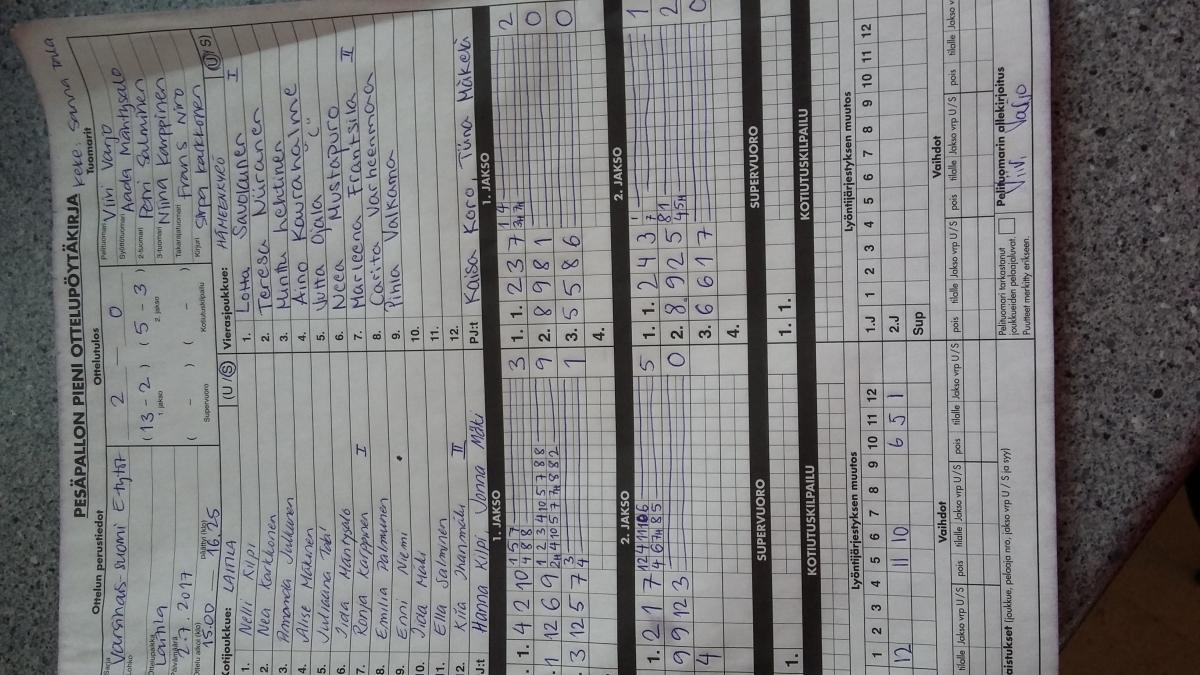 Keke: Sanna Tala
PESÄPALLON PIENI OTTELUPÖYTÄKIRJA
Ottelun perustiedot
Ottelutulos
Tuomarit
Sarja
Lohko
Varsinais suomi E-tytöt
Ottelupaikka
Laitila
Päivämäärä
2.7.2017
Ottelu alkoi (klo)
15.00
Päättyi (klo)
16.25
2 0
(13 - 2) (5 - 3)
1. jakso
2. jakso
( - ) ( - )
Supervuoro
Kotiutuskilpailu
Pelituomari
Viivi Varjo
Syöttötuomari
Aada Mäntysalo
2-tuomari
Peni Salminen
3-tuomari
Nina Karppinen
Takarajatuomari
Frans Niro
Kirjuri
Sirpa Karkkonen
Kotijoukkue: LAITILA (U/S)
1. Nelli Kilpi
2. Nea Karkkonen
3. Amanda Julkunen
4. Alise Mäkinen
5. Juliaana
6. Iida Mäntysalo
7. Ronja Karppinen I
8. Emilia Palmunen
9. Enni Niemi
10. Iida Mäki
11. Ella Salminen
12. Kiia Ihanmäki II
PJ:t Hanna Kilpi Jonna Mäki
Vierasjoukkue: HÄMEENKYRÖ (U/S)
1. Lotta Savolainen I
2. Teresa Niiranen
3. Minttu Lehtinen
4. Aino Kourahalme
5. Jutta Ojala "C"
6. Neea Mustapuro
7. Marleena Frantsila II
8. Carita Varheenmaa
9. Pihla Valkama
10.
11.
12.
PJ:t Kaisa Koro Tiina Mäkelä
1. JAKSO
1. 4 2 10 3
1 12 6 9 9
3 12 5 7 1
1. JAKSO
1. 1. 2 3 7 2
2. 8 9 8 1 0
3. 5 5 8 6 0
4.
2. JAKSO
1. 2 1 7 5
9 9 12 3 0
4
2. JAKSO
1. 1. 2 4 3 1
2. 8 9 2 5 2
3. 6 6 1 7 0
4.
SUPERVUORO
1.
SUPERVUORO
1. 1.
KOTIUTUSKILPAILU
KOTIUTUSKILPAILU
Lyöntijärjestyksen muutos
1 2 3 4 5 6 7 8 9 10 11 12
12 11 10 6 5 1
Lyöntijärjestyksen muutos
1.J 1 2 3 4 5 6 7 8 9 10 11 12
2.J
Sup
Vaihdot
tilalle Jakso vrp U/S pois tilalle Jakso vrp U/S pois tilalle Jakso vrp U/S
Vaihdot
pois tilalle Jakso vrp U/S pois tilalle Jakso vrp U/S pois tilalle Jakso v
(joukkue, pelaaja nro, jakso vrp U / S ja syy)
Pelituomari tarkastanut
joukkueiden pelaajaluvat.
Puutteet merkitty erikseen.
Pelituomarin allekirjoitus
Viivi Varjo